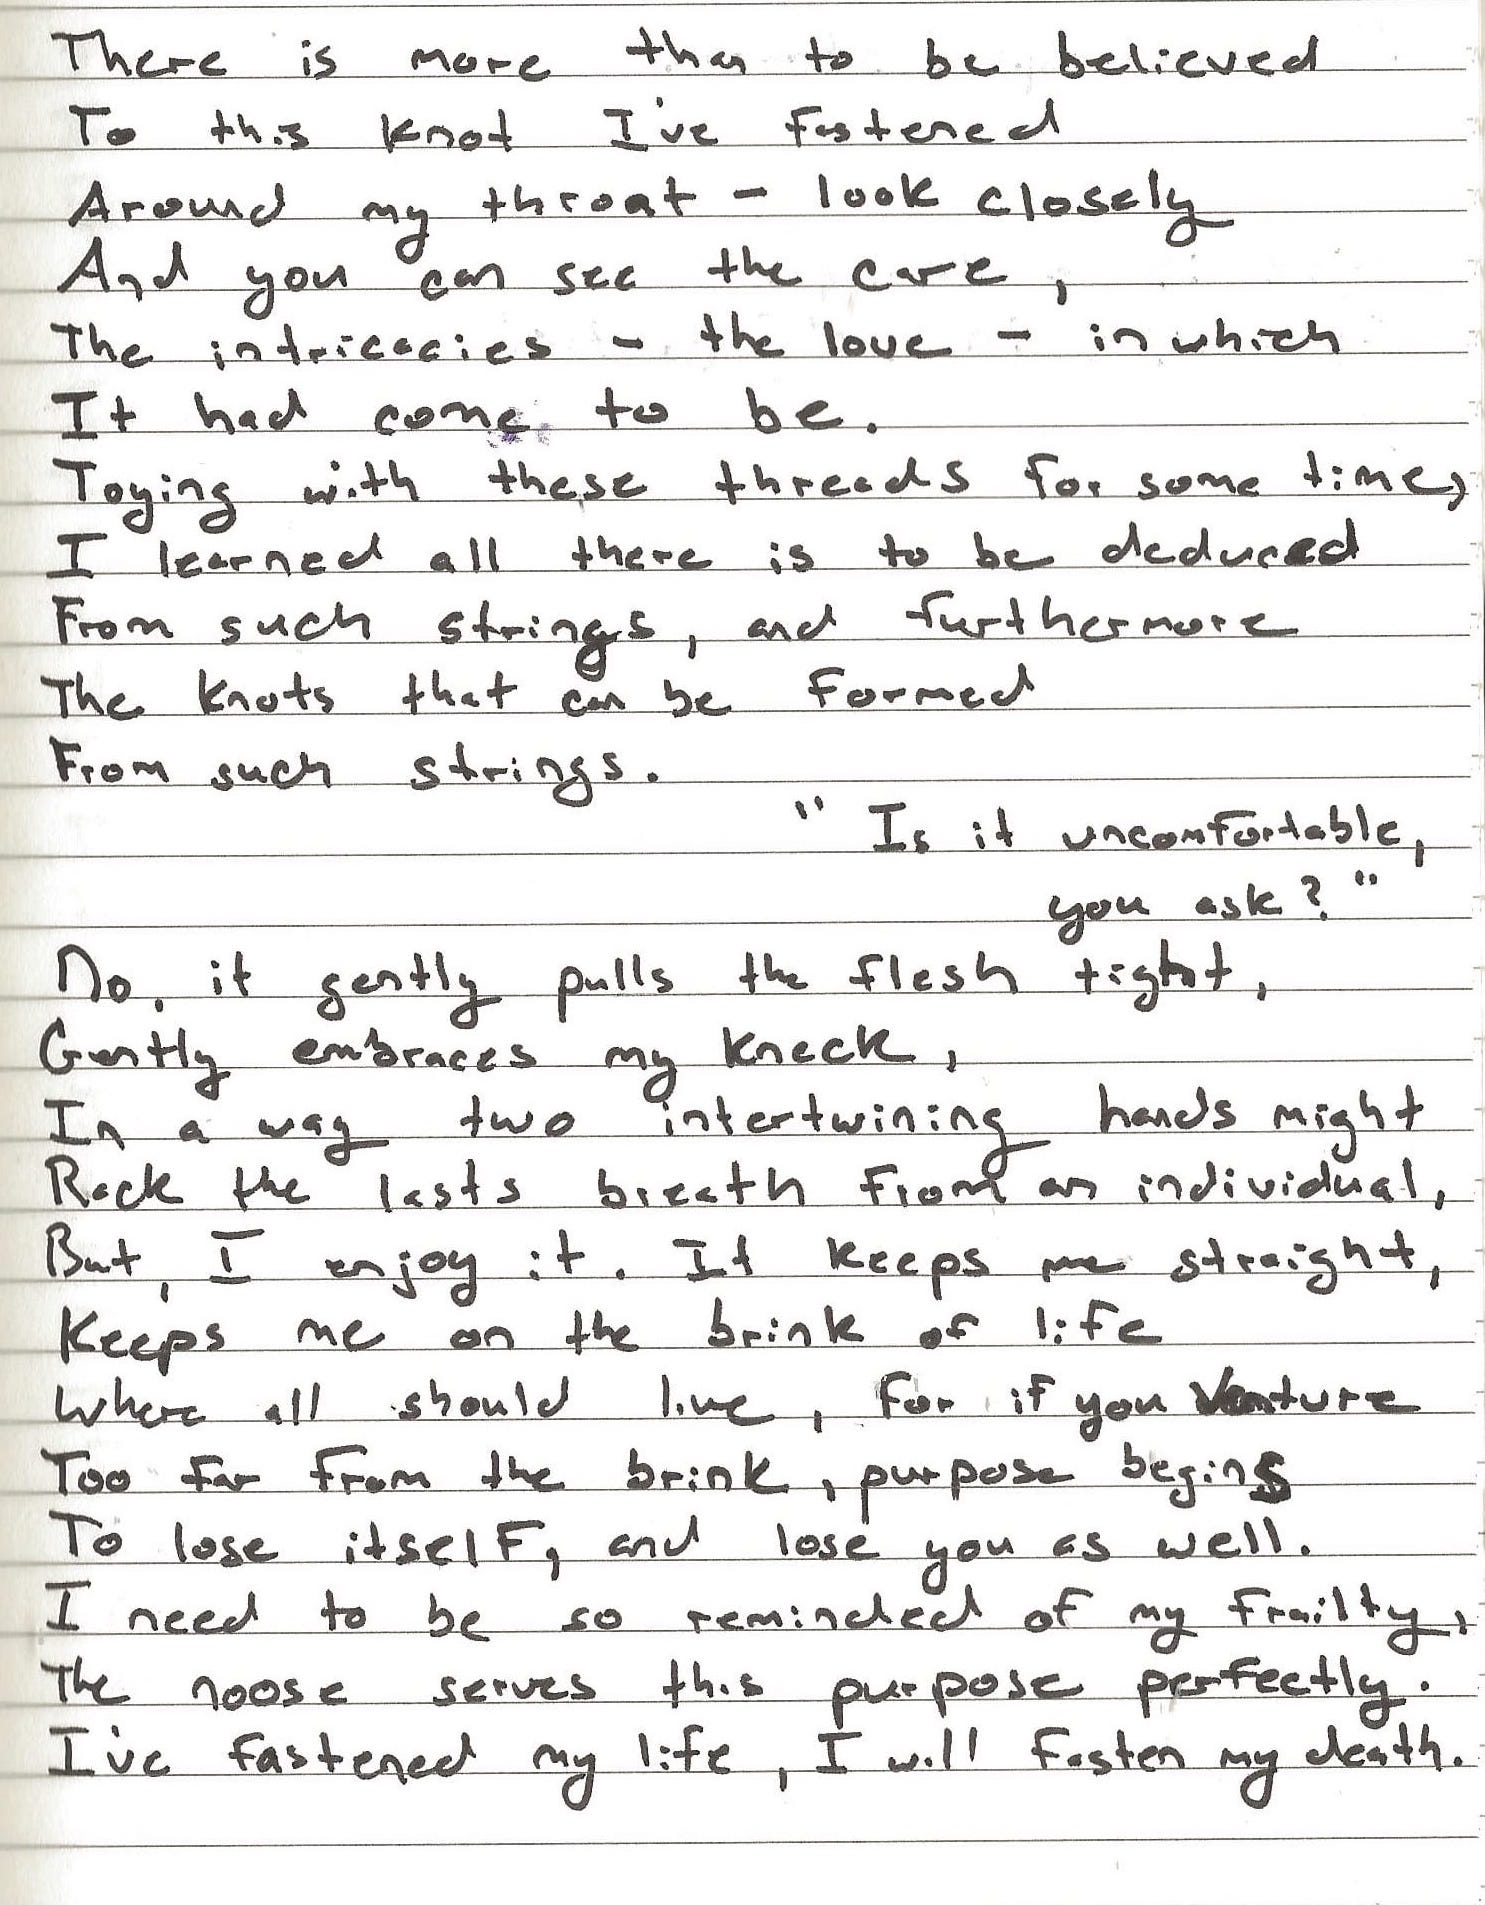 There is more than to be believed
To this knot I've fastened
Around my throat - look closely
And you can see the care,
The intricacies - the love - in which
It had come to be.
Toying with these threads for some time,
I learned all there is to be deduced
From such strings, and furthermore
The knots that can be formed
From such strings.
"Is it uncomfortable,
you ask?"
No, it gently pulls the flesh tight,
Gently embraces my kneck,
In a way two intertwining hands might
Rack the lasts breath from an individual,
But, I enjoy it. It keeps me straight,
Keeps me on the brink of life
Where all should live, for if you venture
Too far from the brink, purpose begins
To lose itself, and lose you as well.
I need to be so reminded of my frailty,
The noose serves this purpose perfectly.
I've fastened my life, I will fasten my death.